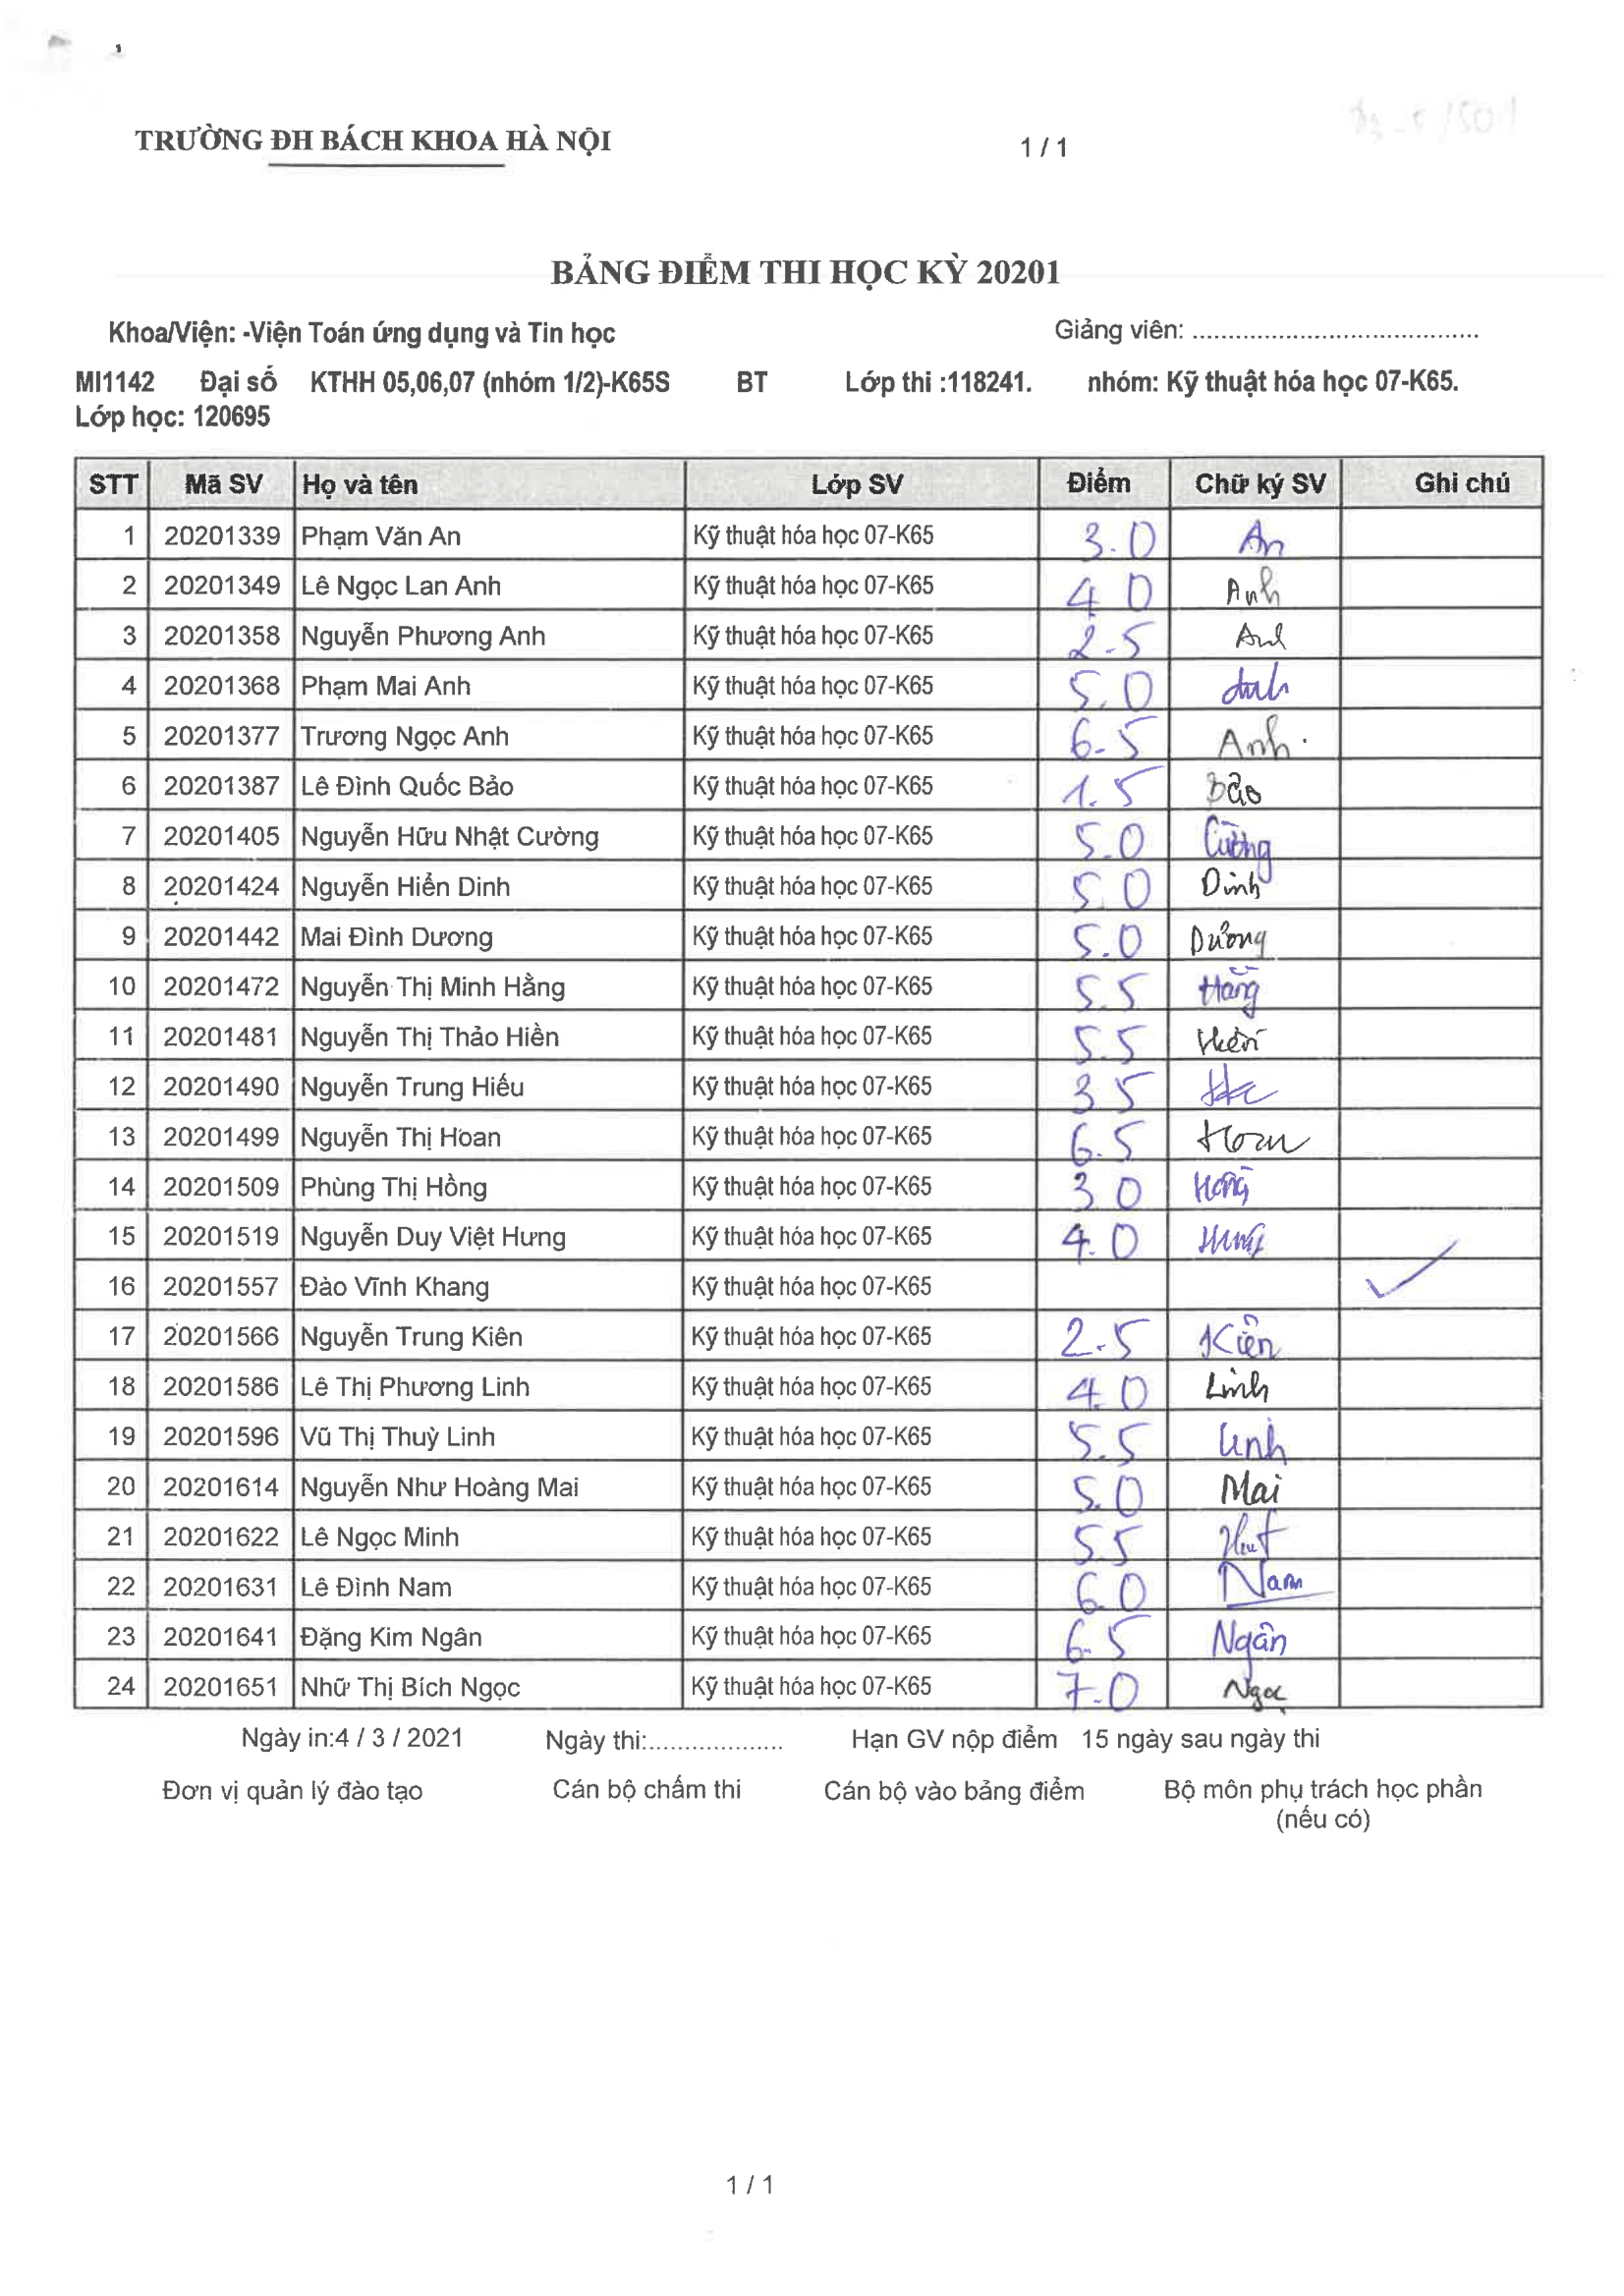 TRƯỜNG ĐH BÁCH KHOA HÀ NỘI 1 / 1
BẢNG ĐIỂM THI HỌC KỲ 20201
Khoa/Viện: -Viện Toán ứng dụng và Tin học Giảng viên: ..........................................
MI1142 Đại số KTHH 05,06,07 (nhóm 1/2)-K65S BT Lớp thi :118241. nhóm: Kỹ thuật hóa học 07-K65.
Lớp học: 120695
STT Mã SV Họ và tên Lớp SV Điểm Chữ ký SV Ghi chú
1 20201339 Phạm Văn An Kỹ thuật hóa học 07-K65 3.0 An
2 20201349 Lê Ngọc Lan Anh Kỹ thuật hóa học 07-K65 4 0 Anh
3 20201358 Nguyễn Phương Anh Kỹ thuật hóa học 07-K65 2.5 Anh
4 20201368 Phạm Mai Anh Kỹ thuật hóa học 07-K65 5.0 Anh
5 20201377 Trương Ngọc Anh Kỹ thuật hóa học 07-K65 6.5 Anh.
6 20201387 Lê Đình Quốc Bảo Kỹ thuật hóa học 07-K65 1.5 Bảo
7 20201405 Nguyễn Hữu Nhật Cường Kỹ thuật hóa học 07-K65 5.0 Cường
8 20201424 Nguyễn Hiển Dinh Kỹ thuật hóa học 07-K65 5.0 Dinh
9 20201442 Mai Đình Dương Kỹ thuật hóa học 07-K65 5.0 Dương
10 20201472 Nguyễn Thị Minh Hằng Kỹ thuật hóa học 07-K65 5.5 Hằng
11 20201481 Nguyễn Thị Thảo Hiền Kỹ thuật hóa học 07-K65 5.5 Hiền
12 20201490 Nguyễn Trung Hiếu Kỹ thuật hóa học 07-K65 3 5
13 20201499 Nguyễn Thị Hoan Kỹ thuật hóa học 07-K65 6.5 Hoan
14 20201509 Phùng Thị Hồng Kỹ thuật hóa học 07-K65 3 0 Hồng
15 20201519 Nguyễn Duy Việt Hưng Kỹ thuật hóa học 07-K65 4.0 Hưng
16 20201557 Đào Vĩnh Khang Kỹ thuật hóa học 07-K65 ✓
17 20201566 Nguyễn Trung Kiên Kỹ thuật hóa học 07-K65 2.5 Kiên
18 20201586 Lê Thị Phương Linh Kỹ thuật hóa học 07-K65 4.0 Linh
19 20201596 Vũ Thị Thuỳ Linh Kỹ thuật hóa học 07-K65 5.5 Linh
20 20201614 Nguyễn Như Hoàng Mai Kỹ thuật hóa học 07-K65 5.0 Mai
21 20201622 Lê Ngọc Minh Kỹ thuật hóa học 07-K65 5 5
22 20201631 Lê Đình Nam Kỹ thuật hóa học 07-K65 6.0 Nam
23 20201641 Đặng Kim Ngân Kỹ thuật hóa học 07-K65 6.5 Ngân
24 20201651 Nhữ Thị Bích Ngọc Kỹ thuật hóa học 07-K65 7.0 Ngọc
Ngày in:4 / 3 / 2021 Ngày thi:................... Hạn GV nộp điểm 15 ngày sau ngày thi
Đơn vị quản lý đào tạo Cán bộ chấm thi Cán bộ vào bảng điểm Bộ môn phụ trách học phần
(nếu có)
1 / 1